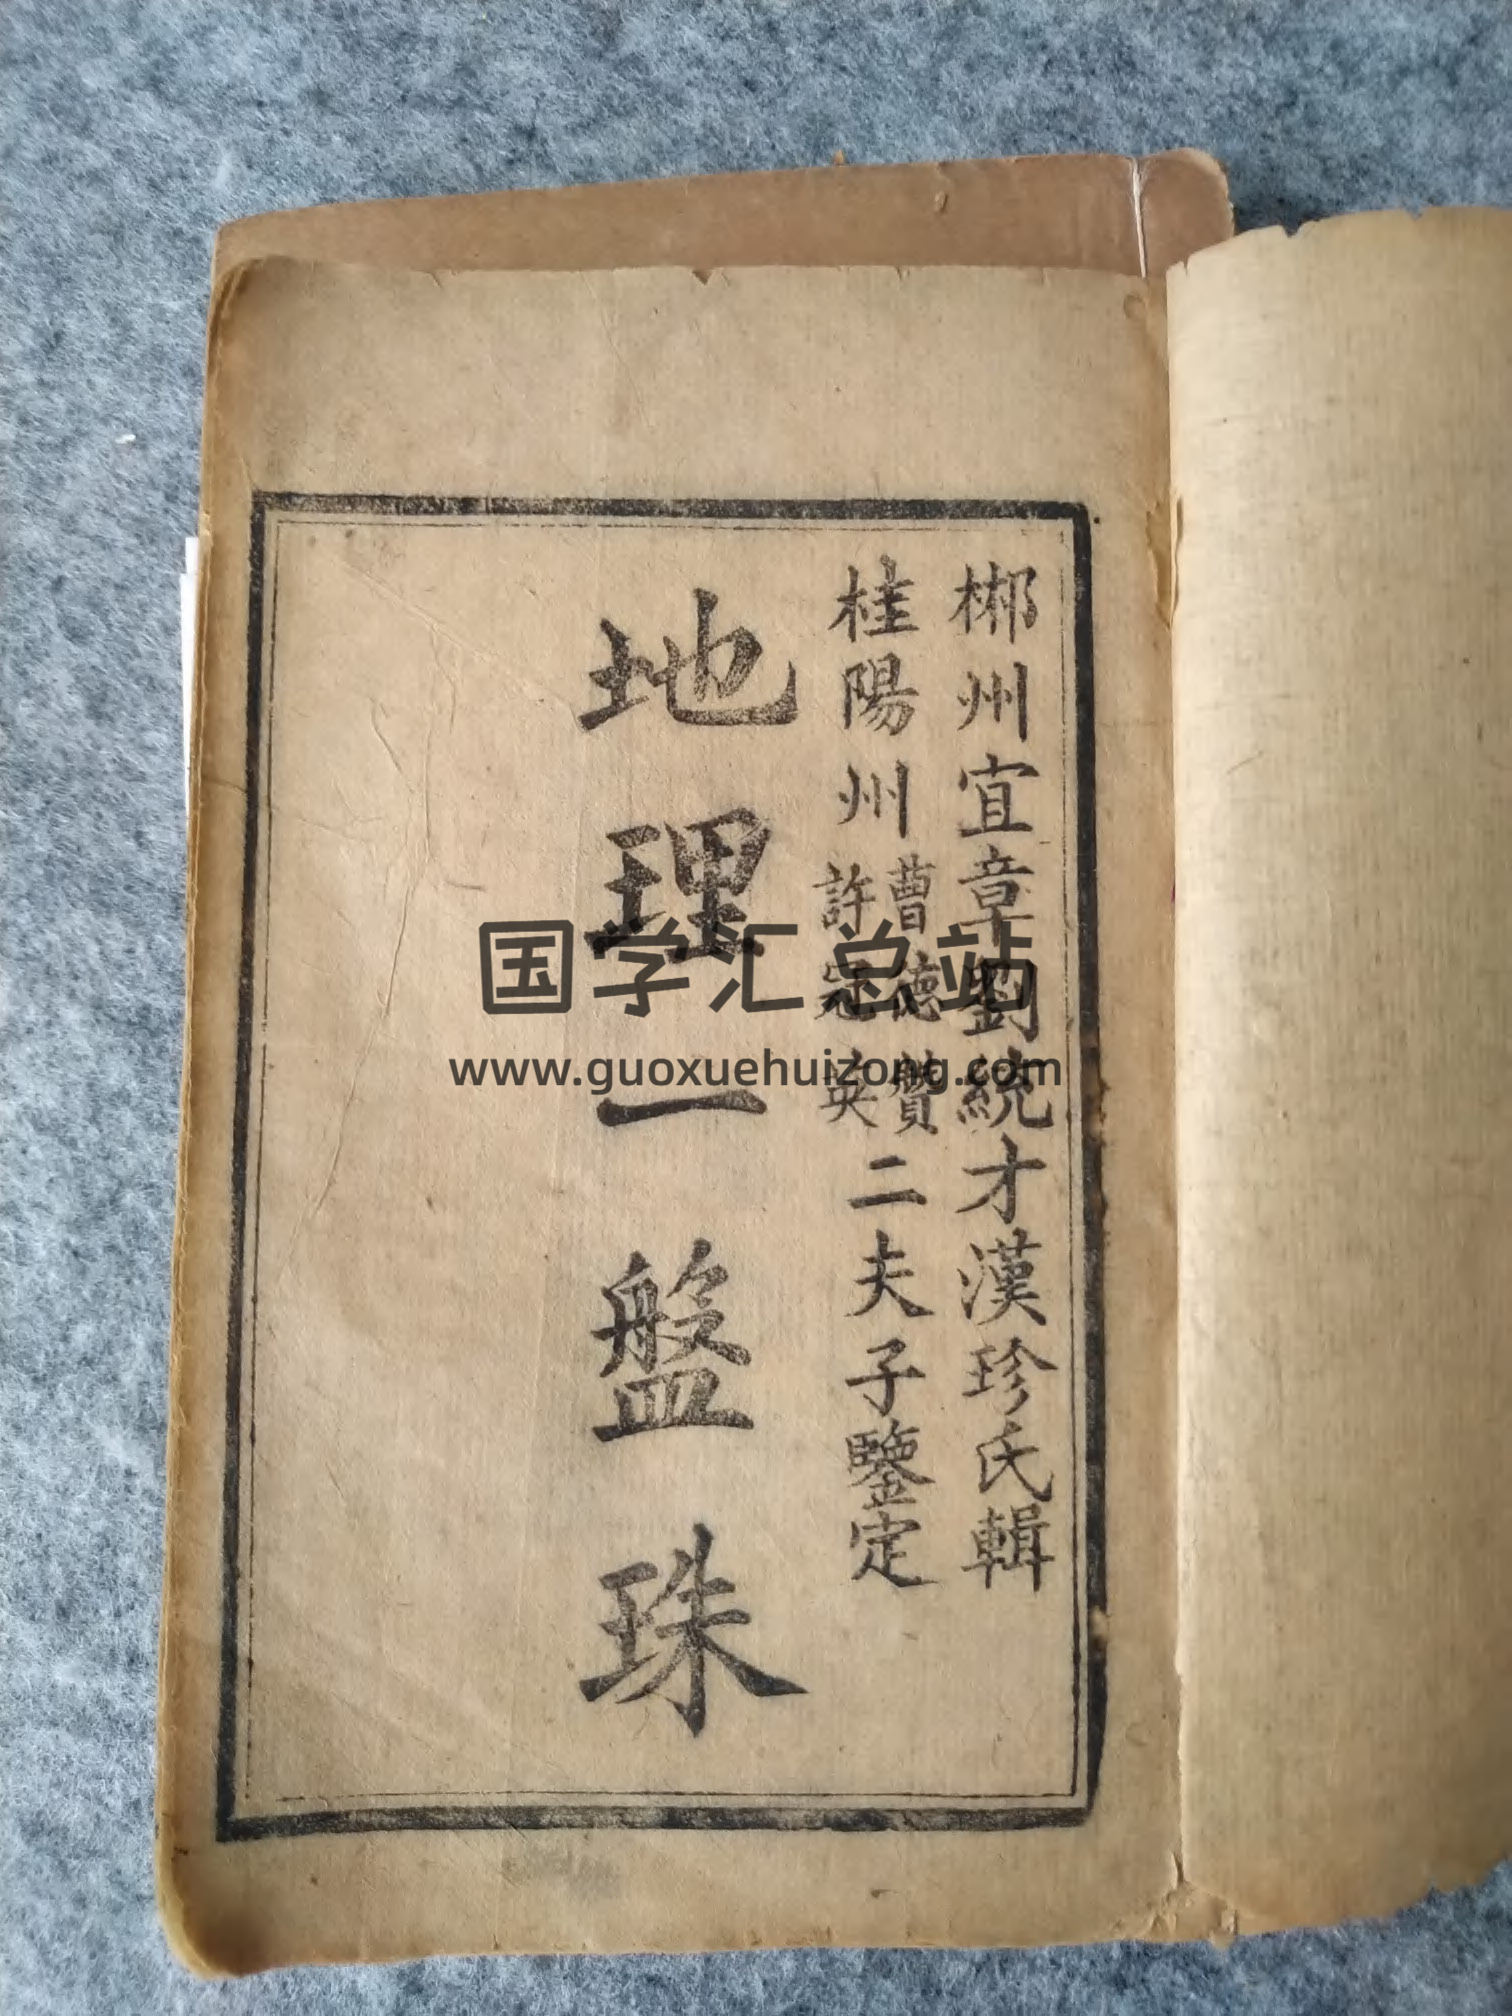 郴州宜章劉統才漢珍氏輯
桂陽州曹德贊許冠英二夫子鑒定
地理一盤珠
国学汇总站
www.guoxuehuizong.com